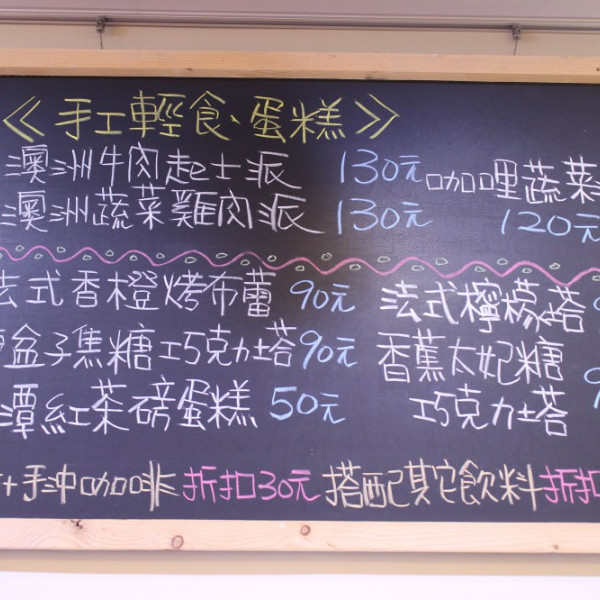 《手工輕食、蛋糕》
澳洲牛肉起士派 130元
澳洲蔬菜雞肉派 130元
咖哩蔬菜
120元
法式香橙烤布蕾 90元
盒子焦糖巧克力塔 90元
潭紅茶磅蛋糕 50元
法式檸檬塔
香蕉太妃糖
巧克力塔
+手沖咖啡折扣30元 搭配其它飲料折扣